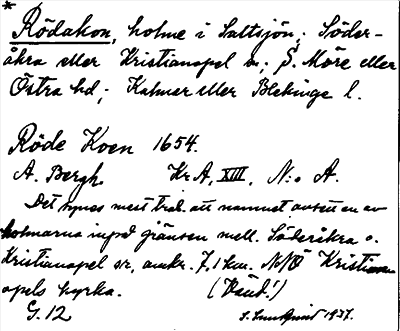 *
Rödakon, holme i Saltsjön; Söder-
åkra eller Kristianopel sn; S. Möre eller
Östra hd; Kalmar eller Blekinge l.
Röde Koen 1654.
A. Bergh. Kr A, XIII, N:o A.
Det synes mest trol. att namnet avsett en av
holmarna invid gränsen mell. Söderåkra o.
Kristianopel sr, omkr. 7,1 km. NNO Kristian-
opels kyrka. (Känd!)
G. 12 1937.